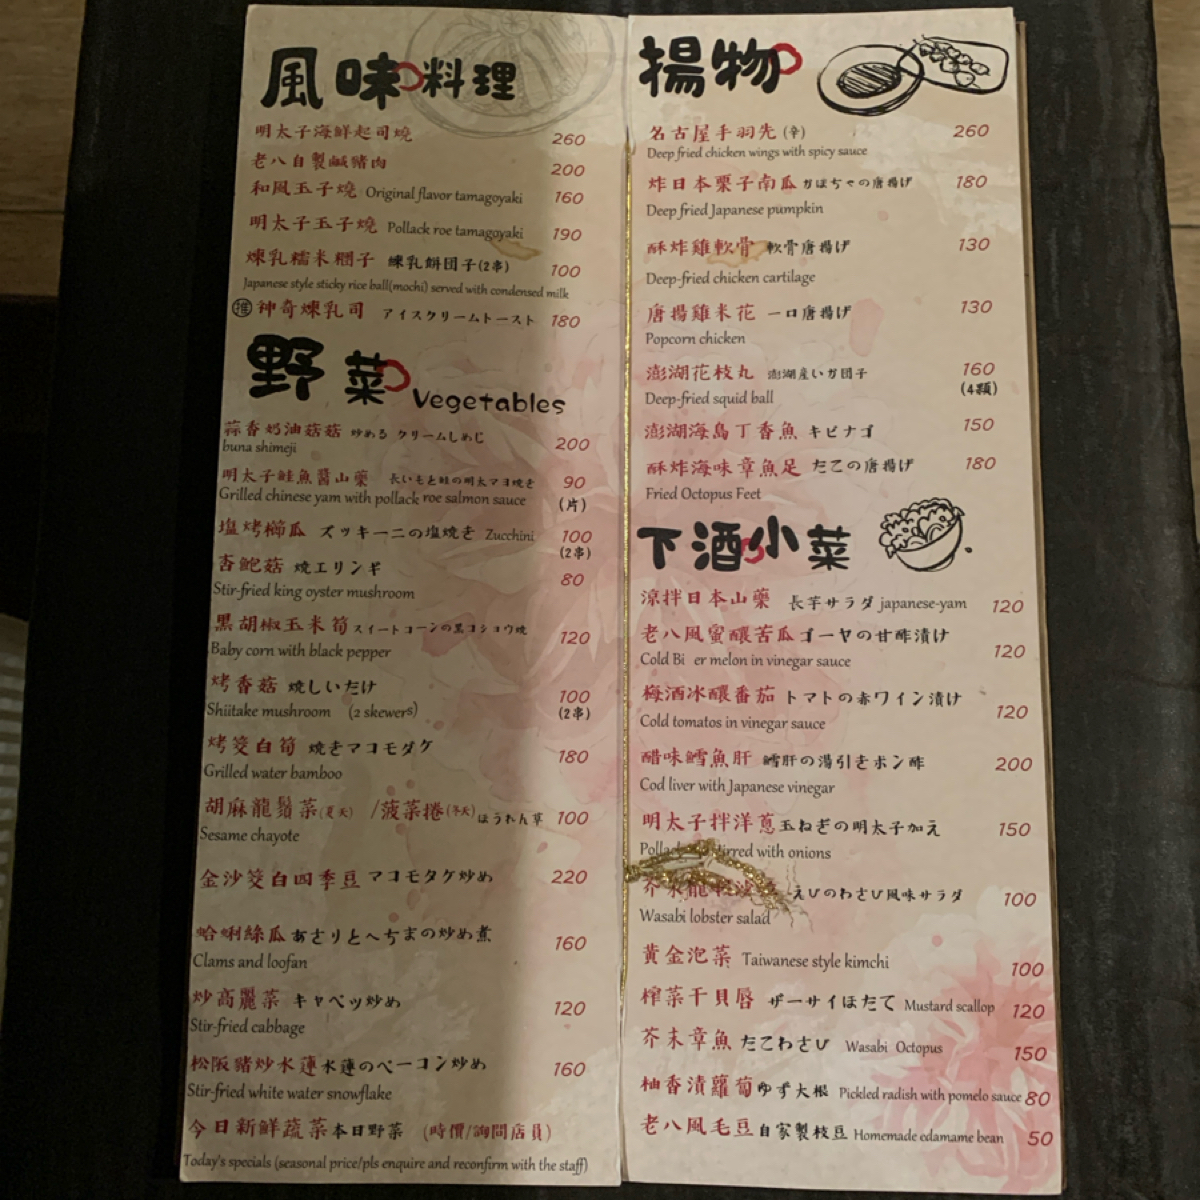 風味料理
明太子海鮮起司燒 260
老八自製鹹豬肉 200
和風玉子燒 Original flavor tamagoyaki 160
明太子玉子燒 Pollack roe tamagoyaki 190
煉乳糯米糰子 練乳餅団子(2串) 100
Japanese style sticky rice ball(mochi) served with condensed milk
推 神奇煉乳司 アイスクリームトースト 180
野菜 Vegetables
蒜香奶油菇菇 炒める クリームしめじ 200
buna shimeji
明太子鮭魚醬山藥 長いもと鮭の明太マヨ焼き 90
Grilled chinese yam with pollack roe salmon sauce (片)
塩烤櫛瓜 ズッキーニの塩焼き Zucchini 100
(2串)
杏鮑菇 焼エリンギ 80
Stir-fried king oyster mushroom
黑胡椒玉米筍 スイートコーンの黒コショウ焼 120
Baby corn with black pepper
烤香菇 焼しいたけ 100
Shiitake mushroom (2 skewers) (2串)
烤筊白筍 焼きマコモダケ 180
Grilled water bamboo
胡麻龍鬚菜(夏天) /菠菜捲(冬天) ほうれん草 100
Sesame chayote
金沙筊白四季豆 マコモタケ炒め 220
蛤蜊絲瓜 あさりとへちまの炒め煮 160
Clams and loofan
炒高麗菜 キャベツ炒め 120
Stir-fried cabbage
松阪豬炒水蓮 水蓮のベーコン炒め 160
Stir-fried white water snowflake
今日新鮮蔬菜 本日野菜 (時價/詢問店員)
Today's specials (seasonal price/pls enquire and reconfirm with the staff)
揚物
名古屋手羽先 (辛) 260
Deep fried chicken wings with spicy sauce
炸日本栗子南瓜 かぼちゃの唐揚げ 180
Deep fried Japanese pumpkin
酥炸雞軟骨 軟骨唐揚げ 130
Deep-fried chicken cartilage
唐揚雞米花 一口唐揚げ 130
Popcorn chicken
澎湖花枝丸 澎湖産いか団子 160
Deep-fried squid ball (4顆)
澎湖海島丁香魚 キビナゴ 150
酥炸海味章魚足 たこの唐揚げ 180
Fried Octopus Feet
下酒小菜
涼拌日本山藥 長芋サラダ japanese-yam 120
老八風蜜釀苦瓜 ゴーヤの甘酢漬け
Cold Bi er melon in vinegar sauce 120
梅酒冰釀番茄 トマトの赤ワイン漬け
Cold tomatos in vinegar sauce 120
醋味鱈魚肝 鱈肝の湯引きポン酢 200
Cod liver with Japanese vinegar
明太子拌洋蔥 玉ねぎの明太子加え 150
with onions
えびのわさび風味サラダ 100
Wasabi lobster salad
黃金泡菜 Taiwanese style kimchi 100
榨菜干貝唇 ザーサイほたて Mustard scallop 120
芥末章魚 たこわさび Wasabi Octopus 150
柚香漬蘿蔔 ゆず大根 Pickled radish with pomelo sauce 80
老八風毛豆 自家製枝豆 Homemade edamame bean 50